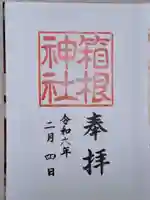 奉拝
箱根
神社
令和六年
二月四日